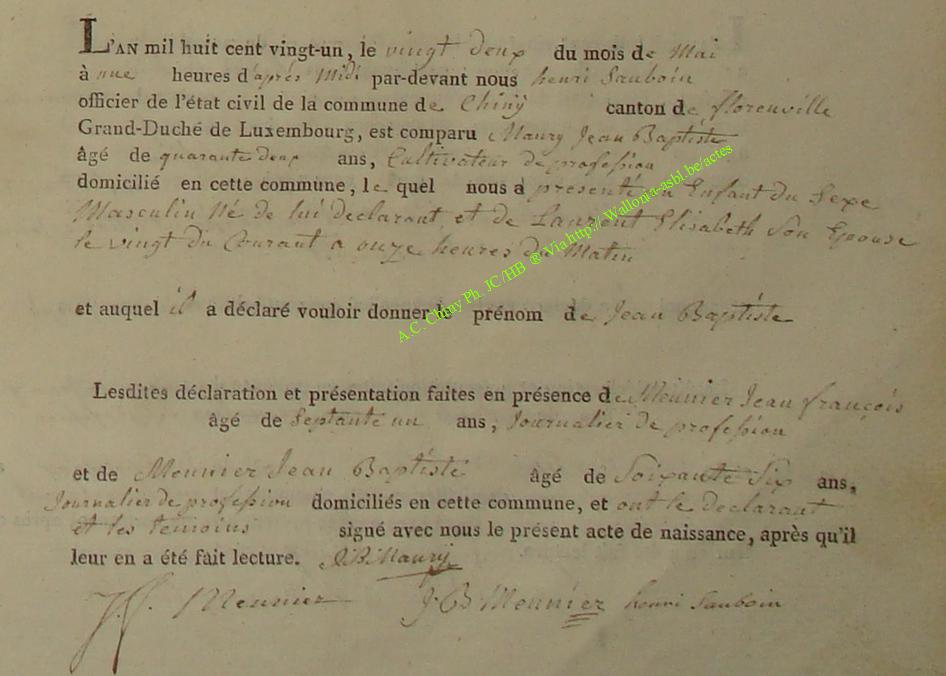 L'AN mil huit cent vingt-un, le vingt deux du mois de Mai
à une heures d'après Midi par-devant nous henri Sauboin
officier de l'état civil de la commune de Chiny canton de florenville
Grand-Duché de Luxembourg, est comparu Maury Jean Baptiste
âgé de quarante deux ans, Cultivateur de profession
domicilié en cette commune, le quel nous a presenté un Enfant du Sexe
Masculin Né de lui declarant et de Laurent Elisabeth Son Epouse
le vingt du Courant a onze heures du Matin
et auquel il a déclaré vouloir donner le prénom de Jean Baptiste
A.C. Chiny Ph. JC/HB @ Via http://Wallonia-asbl.be/actes
Lesdites déclaration et présentation faites en présence de Meunier Jean françois
âgé de Septante un ans, Journalier de profession
et de Meunier Jean Baptiste âgé de Soixante Six ans,
Journalier de profession domiciliés en cette commune, et ont le declarant
et les temoins signé avec nous le présent acte de naissance, après qu'il
leur en a été fait lecture. JB Maury
J f Meunier J. B Meunier henri Sauboin